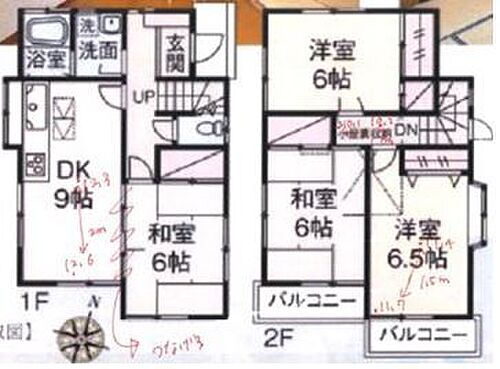 浴室
洗
洗面
玄関
UP
DK
9帖
和室
6帖
1F
N
洋室
6帖
小屋裏収納
DN
和室
6帖
洋室
6.5帖
バルコニー
バルコニー
2F
12.3
2m
12.6
つなげる
1.5m
11.7
図】